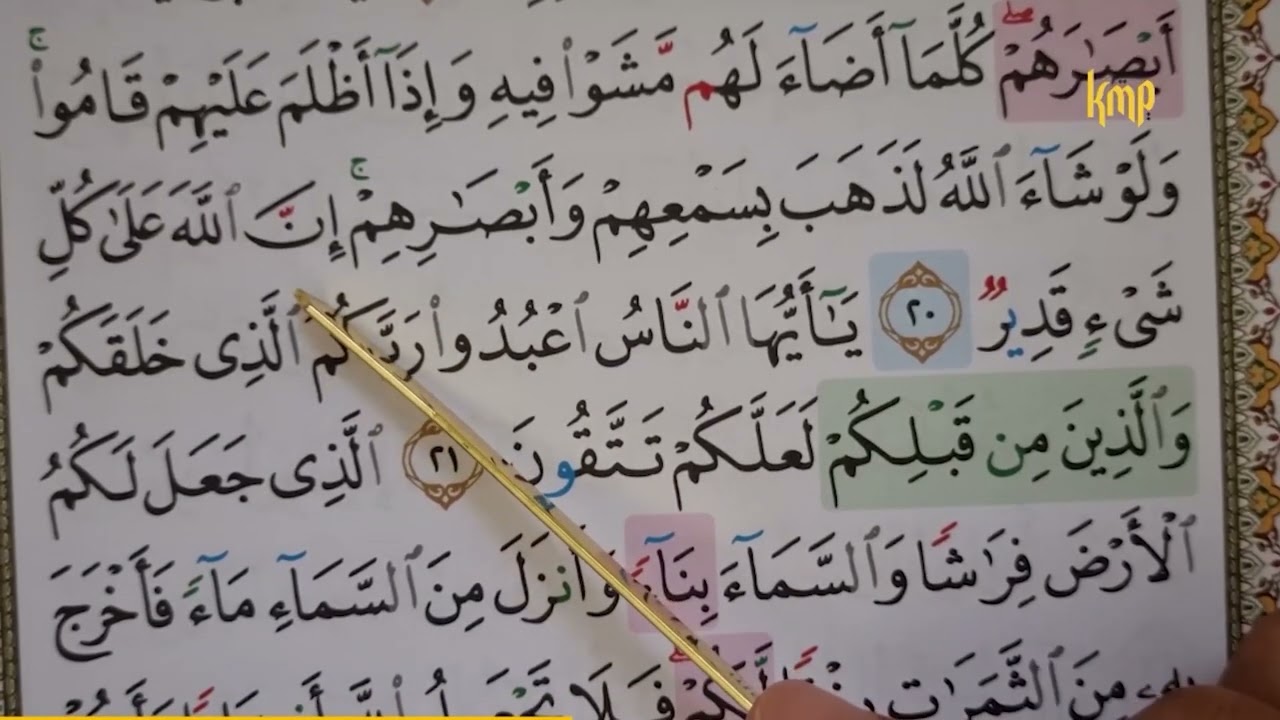 أَبْصَـٰرَهُمْ ۖ كُلَّمَآ أَضَآءَ لَهُم مَّشَوْا۟ فِيهِ وَإِذَآ أَظْلَمَ عَلَيْهِمْ قَامُوا۟ ۚ
kmp
وَلَوْ شَآءَ ٱللَّهُ لَذَهَبَ بِسَمْعِهِمْ وَأَبْصَـٰرِهِمْ ۚ إِنَّ ٱللَّهَ عَلَىٰ كُلِّ
شَىْءٍ قَدِيرٌ ٢٠ يَـٰٓأَيُّهَا ٱلنَّاسُ ٱعْبُدُوا۟ رَبَّكُمُ ٱلَّذِى خَلَقَكُمْ
وَٱلَّذِينَ مِن قَبْلِكُمْ لَعَلَّكُمْ تَتَّقُونَ ٢١ ٱلَّذِى جَعَلَ لَكُمُ
ٱلْأَرْضَ فِرَٰشًا وَٱلسَّمَآءَ بِنَآءً وَأَنزَلَ مِنَ ٱلسَّمَآءِ مَآءً فَأَخْرَجَ
بِهِۦ مِنَ ٱلثَّمَرَٰتِ رِزْقًا لَّكُمْ ۖ فَلَا